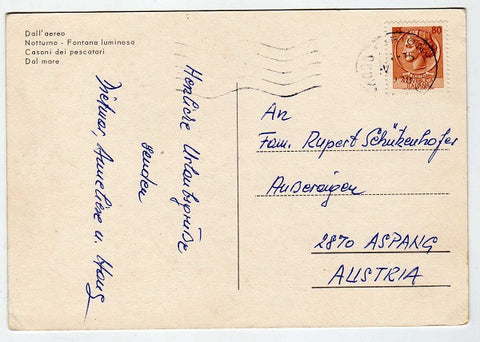 Dall'aereo
Notturno - Fontana luminosa
Casoni dei pescatori
Dal mare
Herzliche Urlaubsgrüße
senden
Dietmar, Anneliese u. Hans
80
An
Fam. Rupert Schützenhofer
Außeraigen
2870 ASPANG
AUSTRIA